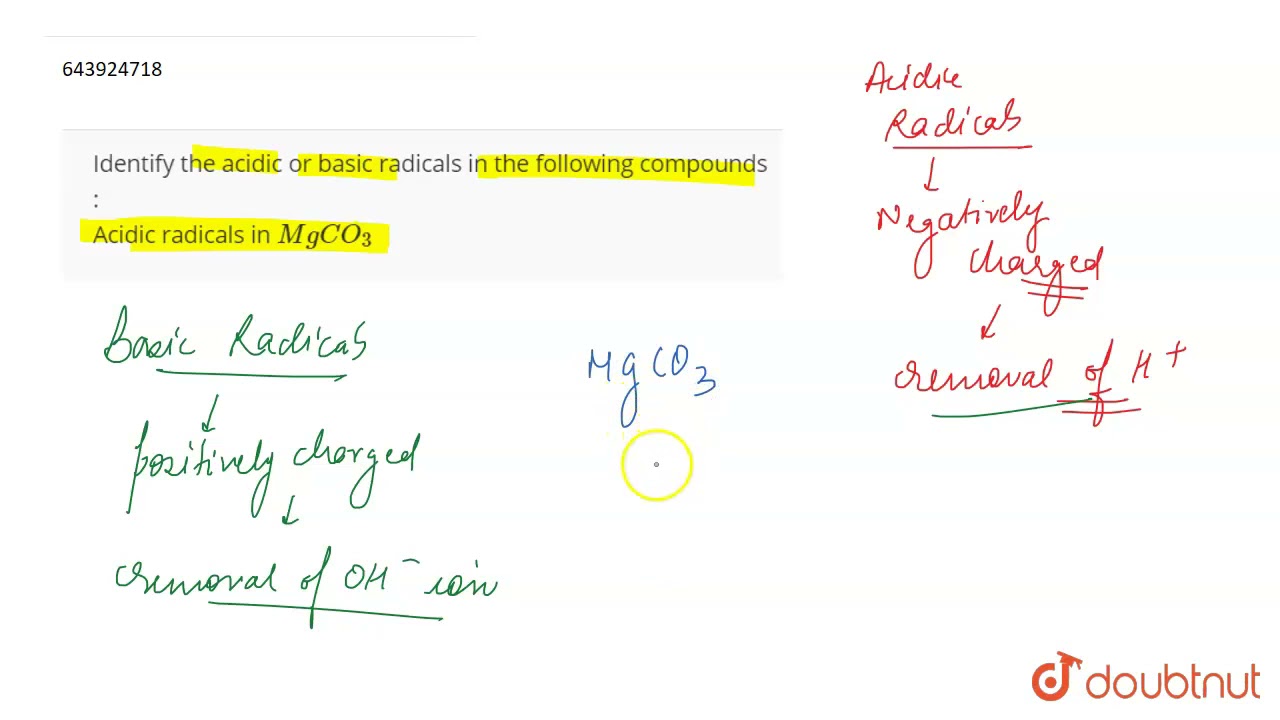 643924718
Identify the acidic or basic radicals in the following compounds
:
Acidic radicals in MgCO₃
Acidic
Radicals
↓
Negatively
charged
↓
removal of H⁺
Basic Radicals
↓
positively charged
↓
removal of OH⁻ ion
MgCO₃
doubtnut